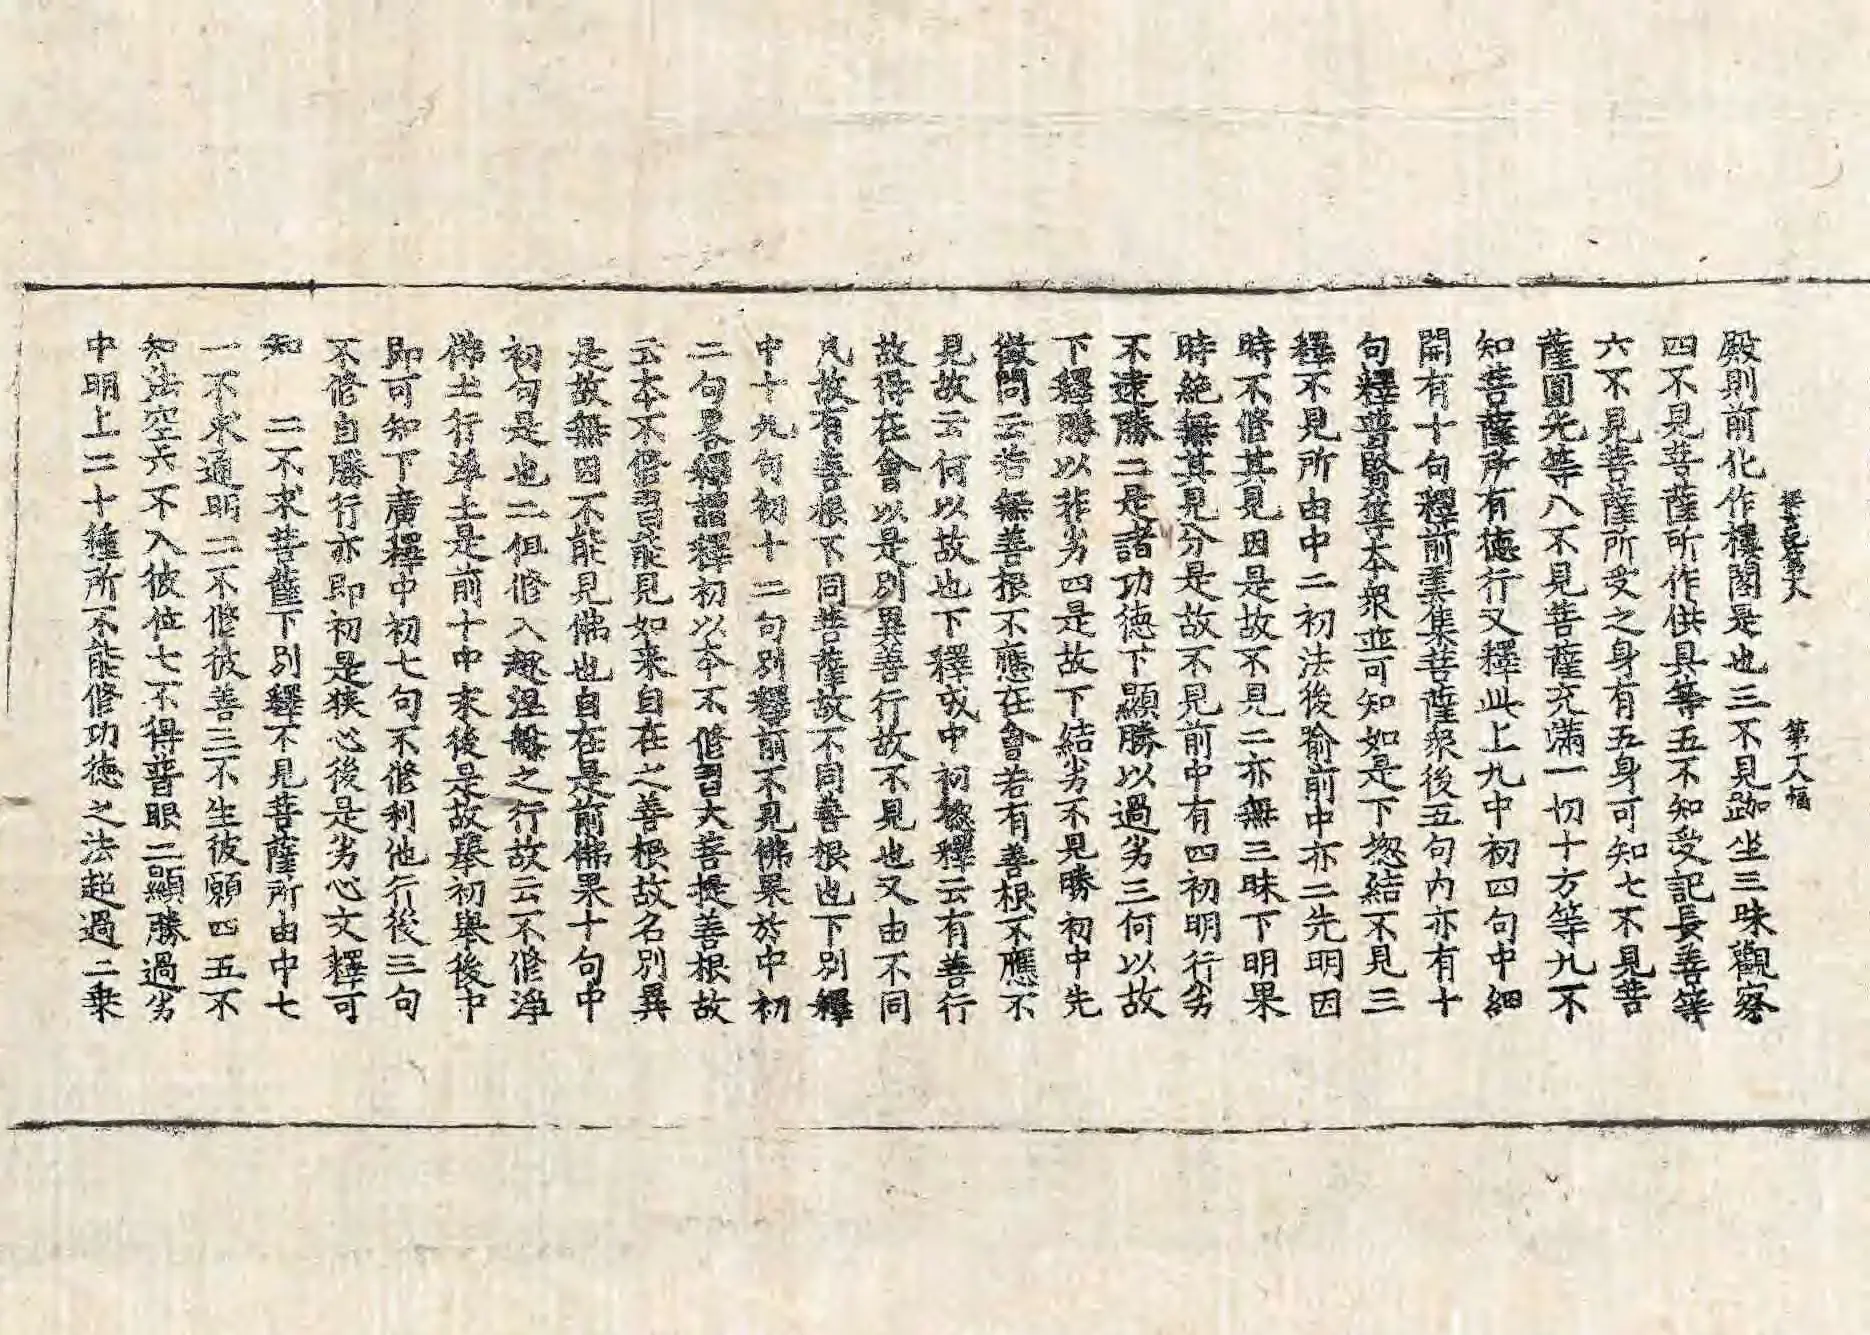 探玄記第十八 第丁八幅
殿則前化作樓閣是也三不見跏坐三昧觀察
四不見菩薩所作供具等五不知受記長善等
六不見菩薩所受之身有五身可知七不見菩
薩圓光等八不見菩薩充滿一切十方等九不
知菩薩所有德行又釋此上九中初四句中細
開有十句釋前雲集菩薩衆後五句內亦有十
句釋普賢等本衆並可知如是下惣結不見三
釋不見所由中二初法後喻前中亦二先明因
時不修其見因是故不見二亦無三昧下明果
時絕無其見分是故不見前中有四初明行劣
不逮勝二是諸功德下顯勝以過劣三何以故
下釋勝以非劣四是故下結劣不見勝初中先
徵問云若無善根不應在會若有善根不應不
見故云何以故也下釋或中初惣釋云有善行
故得在會以是別異善行故不見也又由不同
凡故有善根不同菩薩故不同善根也下別釋
中十九句初十二句別釋前不見佛果於中初
二句畧釋謂釋初以本不修習大菩提善根故
云本不修習能見如來自在之善根故名別異
是故無因不能見佛也自在是前佛果十句中
初句是也二但修入趣涅槃之行故云不修淨
佛土行淨土是前十中末後是故舉初與後中
即可知下廣釋中初七句不修利他行後三句
不修自勝行亦即初是狹心後是劣心文釋可
知 二不求菩薩下別釋不見菩薩所由中七
一不求通明二不修彼善三不生彼願四五不
知法空六不入彼位七不得普眼二顯勝過劣
中明上二十種所不能修功德之法超過二乘